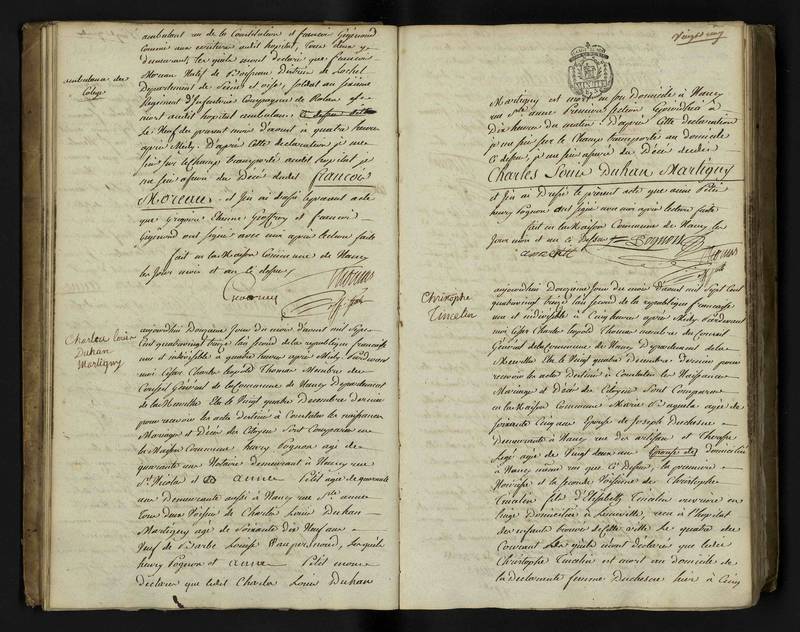 ambulant rue de la Constitution et francois Gigound
Commis aux ecritures audit hopital, tous deux y
demeurant, les quels m'ont declaré que francois
Moreau Natif de District de
Departement de Seine et oise, soldat au
Regiment d'Infanterie Compagnie de Rolan est
mort audit hopital ambulant
Le Neuf du present mois d'aoust à quatre heures
après Midy. D'après Cette declaration je me
suis sur le champ transporté audit hopital je
me suis assuré du Décé dudit francois
Moreau, et j'en ai dressé le present acte
que Gregoire Etienne Geoffroy et francois
Gigound ont signé avec moi après lecture faite
fait en la Maison Commune de Nancy
les Jour mois et an ci dessus
ambulance du
College
Charles Louis
Duhan
Martigny
aujourdhui Douzieme Jour du mois d'aoust mil Sept
Cent quatrevingt treize l'an second de la republique francaise
une et indivisible à quatre heures après Midy Pardevant
moi Cit.en Charles Leopold Thomas Membre du
Conseil Général de la Commune de Nancy Departement
de la Meurthe Elu le Vingt quatre Decembre dernier
pour recevoir les actes Destinés à Constater les naissances
Mariages et Décés des Citoyens Sont Comparus en
la Maison Commune henry Pognon agé de
quarante ans Notaire demeurant à Nancy rue
St Nicolas et anne Petit agée de quarante
ans Demeurante aussi à Nancy rue Ste anne
tous deux Voisins de Charles Louis Duhan
Martigny agé de Soixante Dix Neuf ans
Veuf de Barbe Louise , lesquels
henry Pognon et anne Petit m'ont
declaré que ledit Charles Louis Duhan
Vingt cinq
Martigny est mort en son Domicile à Nancy
rue Ste anne Premiere Section à
Dix heures du matin. D'après Cette declaration
je me suis sur le Champ transporté au domicile
ci dessus, je me suis assuré du Décé dudit
Charles Louis Duhan Martigny
et j'en ai Dressé le présent acte que anne Petit
henry Pognon ont signé avec moi après lecture faite
fait en la Maison Commune de Nancy les
Jour mois et an ci dessus
Pognon
anne petit
Christophe
Tincelin
aujourdhui Douzieme Jour du mois d'aoust mil Sept Cent
quatrevingt treize l'an second de la republique francaise
une et indivisible à Cinq heures après Midy Pardevant
moi Cit.en Charles Leopold Thomas membre du Conseil
Général de la Commune de Nancy Departement de la
Meurthe Elu le Vingt quatre Decembre dernier pour
recevoir les actes Destinés à Constater les Naissances
Mariages et Décés des Citoyens Sont Comparus
en la Maison Commune Marie agée de
soixante Cinq ans Epouse de Joseph Duchesne
Demeurante à Nancy rue des artisans et Therese
Legé agée de Vingt deux ans domiciliée
à Nancy même rue que ci Dessus, la premiere
Nourice et la seconde Voisine de Christophe
Tincelin fils d'Elisabeth Tincelin ouvriere en
linge Domiciliée à Luneville, recu à l'hopital
des enfants trouvés de Cette ville le quatre du
Courant les quels m'ont declaré que ledit
Christophe Tincelin est mort au domicile de
la Declarante femme Duchesne hier à Cinq